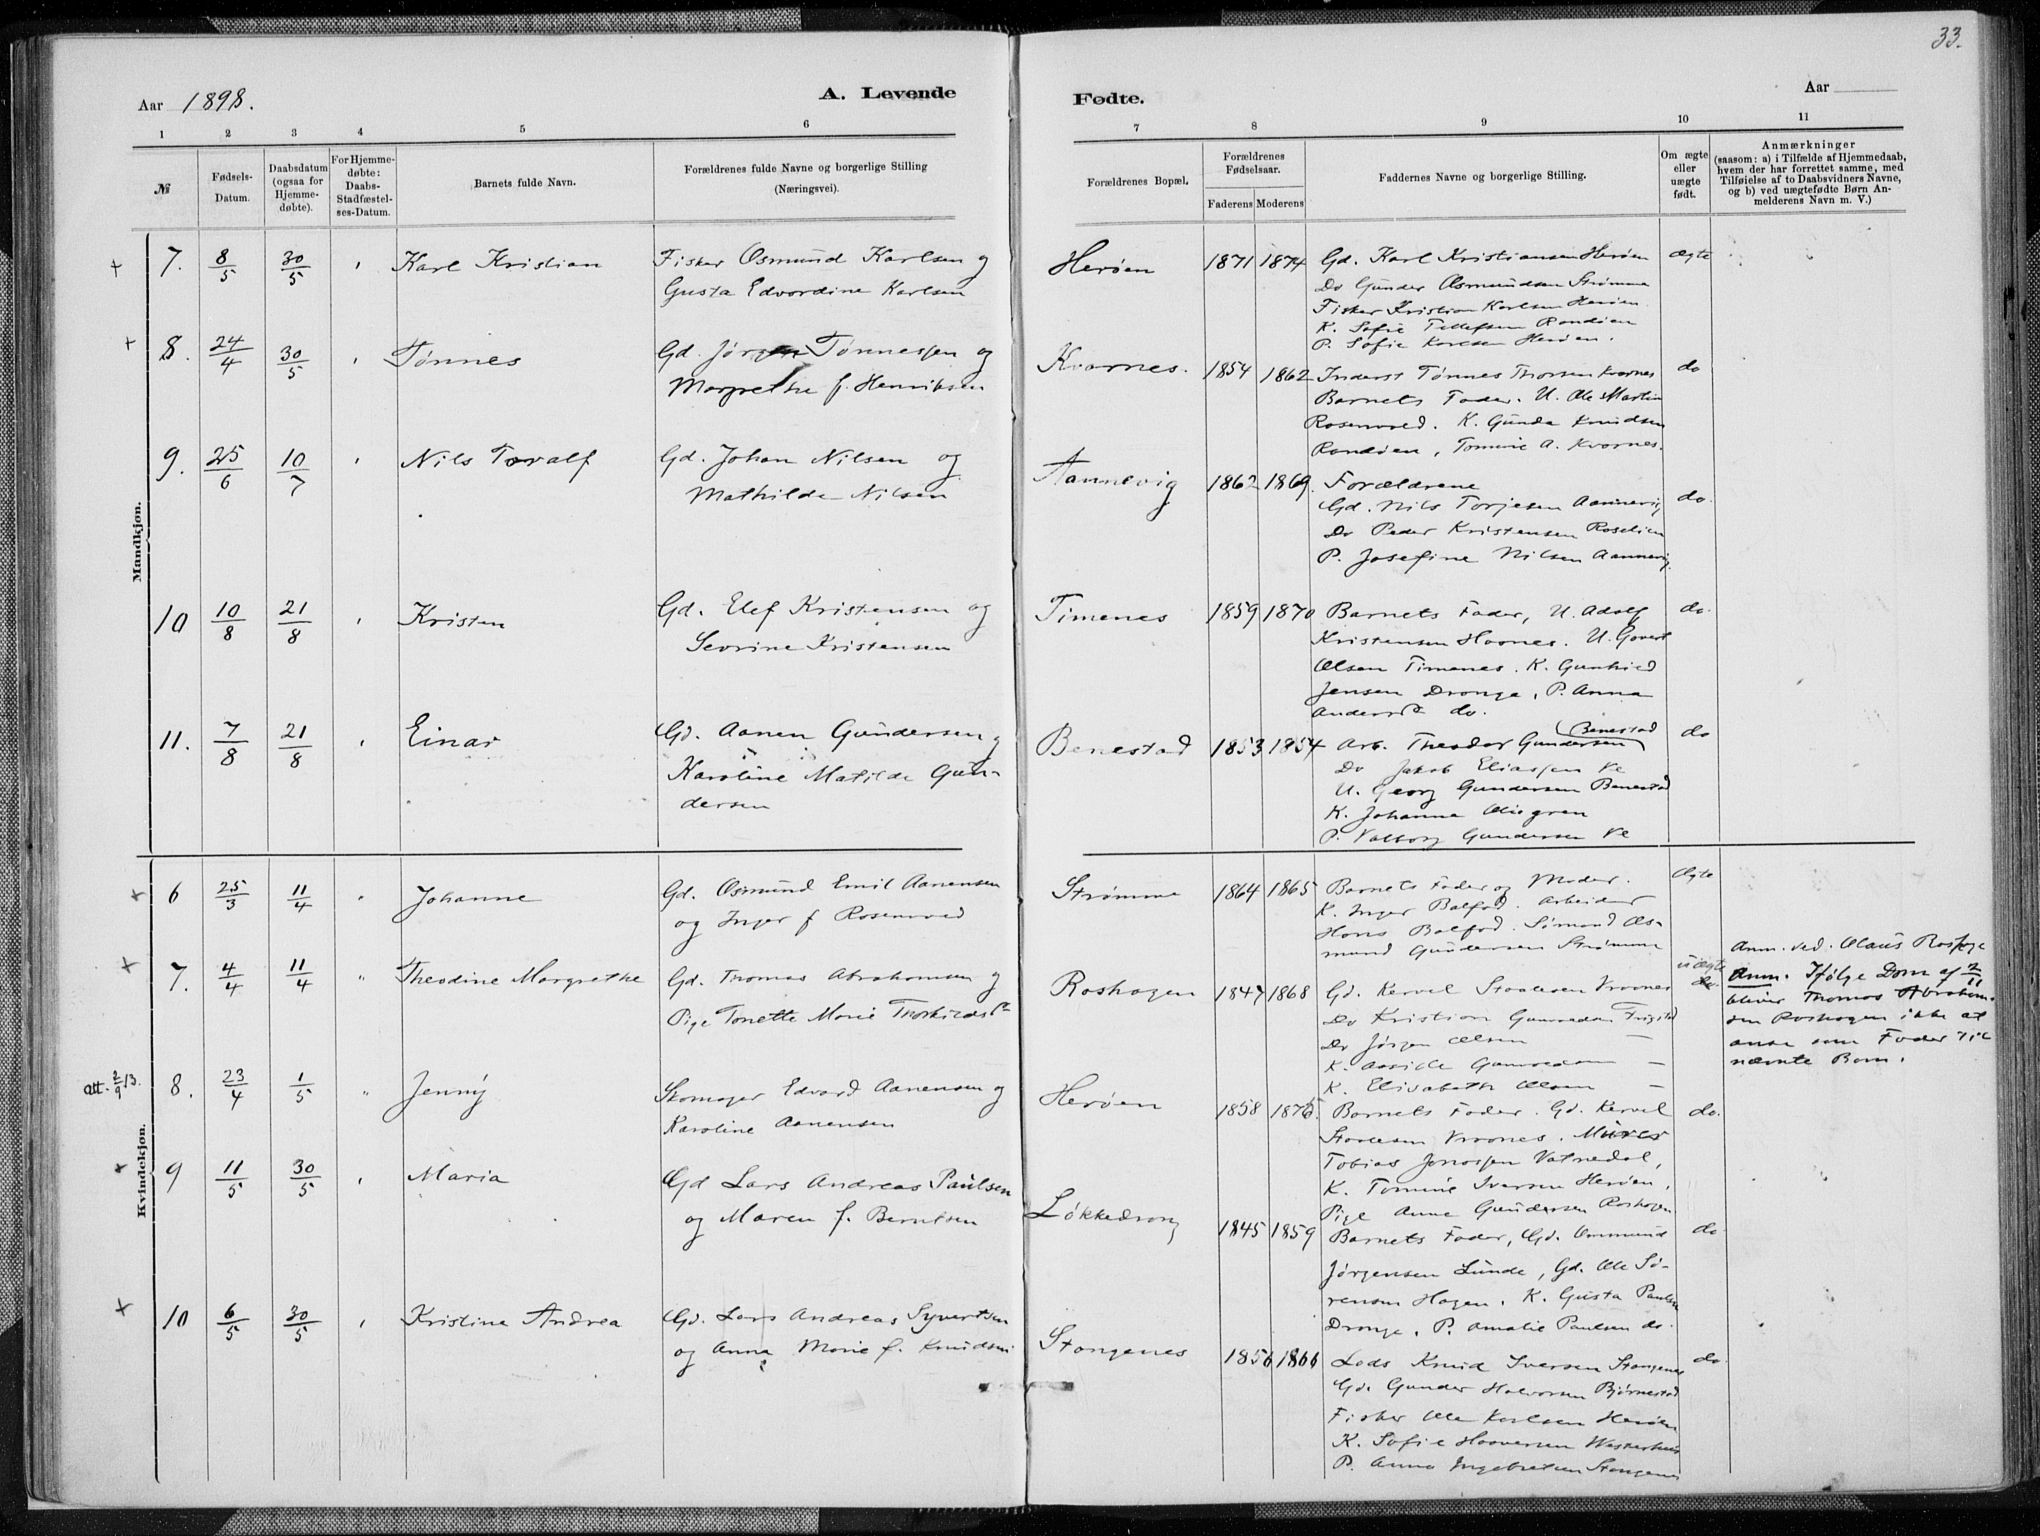 33.
Aar 1898.
A. Levende
Fødte.
Aar
1 2 3 4 5 6 7 8 9 10 11
№
Fødsels-
Datum.
Daabsdatum
(ogsaa for
Hjemme-
døbte).
For Hjemme-
døbte:
Daabs-
Stadfæstel-
ses-Datum.
Barnets fulde Navn.
Forældrenes fulde Navne og borgerlige Stilling
(Næringsvei).
Forældrenes Bopæl.
Forældrenes
Fødselsaar.
Faderens Moderens
Faddernes Navne og borgerlige Stilling.
Om ægte
eller
uægte
født.
Anmærkninger
(saasom: a) i Tilfælde af Hjemmedaab,
hvem der har forrettet samme, med
Tilføielse af to Daabsvidners Navne,
og b) ved uægtefødte Børn An-
melderens Navn m. V.)
Mandkjøn.
7. 8/5 30/5 Karl Kristian
Fisker Osmund Karlsen og
Gusta Edvardine Karlsen
Herøen 1871 1874
Gd. Karl Kristiansen Herøen
Do Gunder Osmundsen Strømme
Fisker Kristian Karlsen Herøen
K. Sofie Tellefsen Randøen
P. Sofie Karlsen Herøen.
ægte
8. 24/4 30/5 Tønnes
Gd. Jørgen Tønnessen og
Margrethe f. Henriksen
Kvarnes. 1854 1862
Inderst Tønnes Thorsen Kvarnes
Barnets Fader. U. Ole Martin
Rosenvold. K. Gunda Knudsen
Randøen, Tomine A. Kvarnes.
do
9. 25/6 10/7 Nils Toralf
Gd. Johan Nilsen og
Mathilde Nilsen
Aannevig 1862 1869.
Forældrene
Gd. Nils Torjesen Aannevig
Do Peder Kristensen Roselien
P. Josefine Nilsen Aannevig.
do.
10 10/8 21/8 Kristen
Gd. Elef Kristensen og
Sevrine Kristensen
Timenes 1859 1870
Barnets Fader, U. Adolf
Kristensen Haanes. U. Govert
Olsen Timenes. K. Gunhild
Jensen Drange, P. Anna
do.
do.
11. 7/8 21/8 Einar
Gd. Aanen Gundersen og
Karoline Matilde Gun-
dersen
Benestad 1853 1854
Benestad
Arb. Theodor Gundersen
Do Jakob Eliassen Ve
U. Georg Gundersen Benestad
K. Johanna
P. Valborg Gundersen Ve
do
Kvindekjøn.
6 25/3 11/4 Johanne
Gd. Osmund Emil Aanensen
og Inger f. Rosenvold
Strømme 1864 1865
Barnets Fader og Moder.
K. Inger Balfod. Arbeider
Hans Balfod. Sømand Os-
mund Gundersen Strømme
Ægte
7. 4/4 11/4 Theodine Margrethe
Gd. Thomas Abrahamsen og
Pige Tonette Marie
Roshagen 1847 1868
Gd. Kervel Staalesen Vraanes
Do Kristian Frigstad
Do Jørgen Olsen —
K. —
K. Elisabeth Olsen —
uægte
do.
Anm. ved. Olaus Roshage
Anm. Ifølge Dom af 2/11
bliver Thomas Abraham-
sen Roshagen ikke at
anse som Fader til
nævnte Barn.
att. 2/9 13.
8. 23/4 1/5 Jenny
Skomager Edvard Aanensen og
Karoline Aanensen
Herøen 1858 1875.
Barnets Fader. Gd. Kervel
Staalesen Vraanes. Murer
Tobias Jonassen Vatnedal,
K. Tomine Iversen Herøen.
Pige Anne Gundersen Roshagen
do.
9 11/5 30/5 Maria
Gd Lars Andreas Paulsen
og Maren f. Berntsen
Løkkedrang 1845 1859
Barnets Fader, Gd. Ommund
Jørgensen Lunde, Gd. Ole Sø-
rensen Hagen. K. Gusta Paulsen
Drange. P. Amalie Paulsen do.
do
10 6/5 30/5 Kristine Andrea
Gd. Lars Andreas Syvertsen
og Anna Marie f. Knudsen
Stangenes 1856 1866
Lods Knud Iversen Stangenes
Gd. Gunder Halvorsen Bjørnestad
Fisker Ole Karlsen Herøen
K. Sofie Haaversen
P. Anna Ingebretsen Stangenes
do.